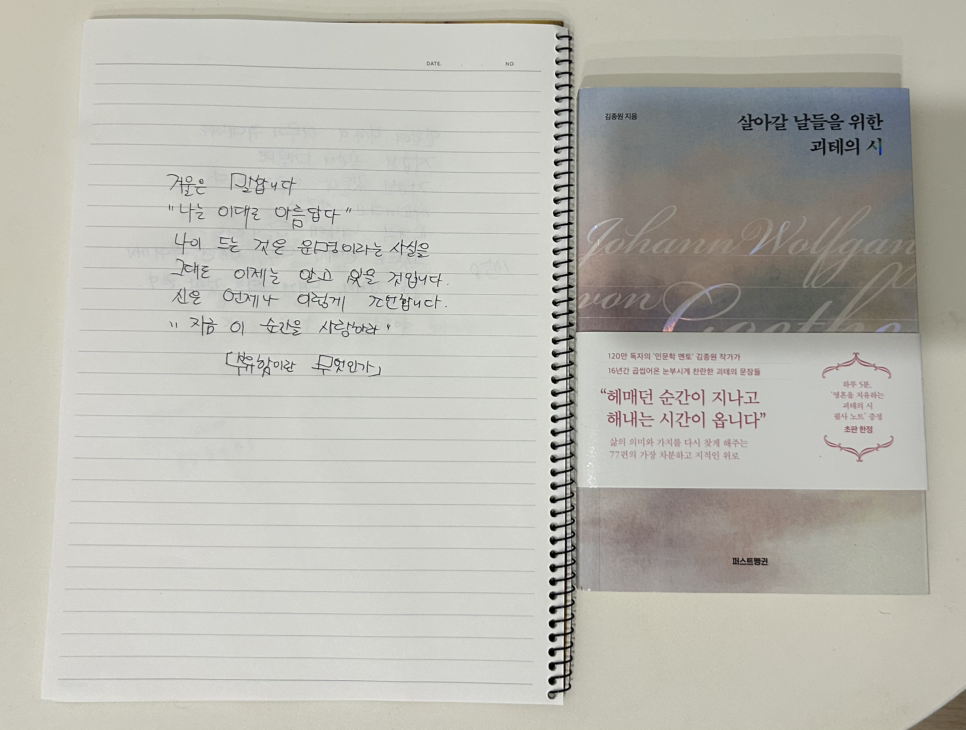 DATE. NO.
거울은 말합니다
"나는 이대로 아름답다"
나이 드는 것은 운명이라는 사실을
그대는 이제는 알고 있을 것입니다.
신은 언제나 이렇게 조언합니다.
"지금 이 순간을 사랑하라"
「부유함이란 무엇인가」
김종원 지음
살아갈 날들을 위한
괴테의 시
Johann Wolfgan
von Goethe
120만 독자의 '인문학 멘토' 김종원 작가가
16년간 곱씹어온 눈부시게 찬란한 괴테의 문장들
"헤매던 순간이 지나고
해내는 시간이 옵니다"
삶의 의미와 가치를 다시 찾게 해주는
77편의 가장 차분하고 지적인 위로
하루 5분,
'영혼을 치유하는
괴테의 시
필사 노트' 증정
초판 한정
퍼스트펭귄